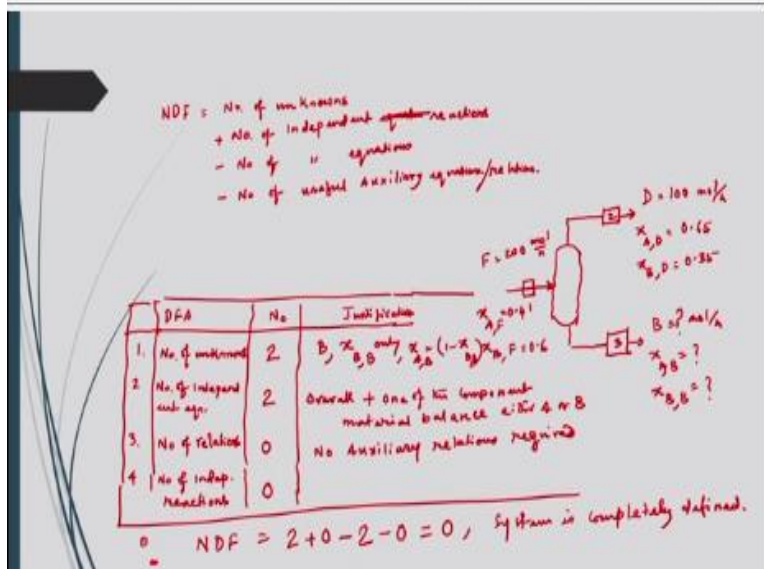 NDF = No. of unknowns
+ No. of Independent reactions
- No of " equations
- No of useful Auxiliary equation/relation.
D = 100 mol/h
x A,D = 0.65
x B,D = 0.35
F = 200 mol/h
x A,F = 0.4
B = ? mol/h
x A,B = ?
x B,B = ?
2
3
DFA No Justification
1. No. of unknowns 2 B, x B,B only, x A,B = (1-x B,B) x B,F = 0.6
2 No. of Independent eqn. 2 Overall + one of the component material balance either A or B
3. No of relations 0 No Auxiliary relations required
4 No of indep. reactions 0
NDF = 2+0-2-0 = 0, System is completely defined.